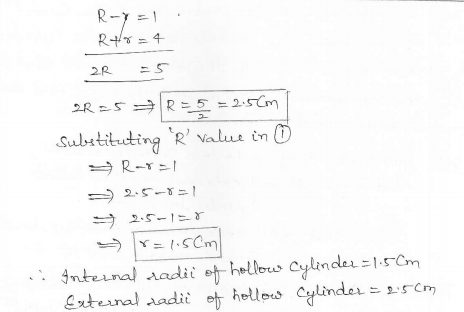 R-r=1
R+r=4
2R =5
2R=5 ⟹ R=5/2=2.5Cm
Substituting 'R' value in ①
⟹ R-r=1
⟹ 2.5-r=1
⟹ 2.5-1=r
⟹ r=1.5Cm
∴ Internal radii of hollow Cylinder=1.5Cm
External radii of hollow Cylinder=2.5Cm